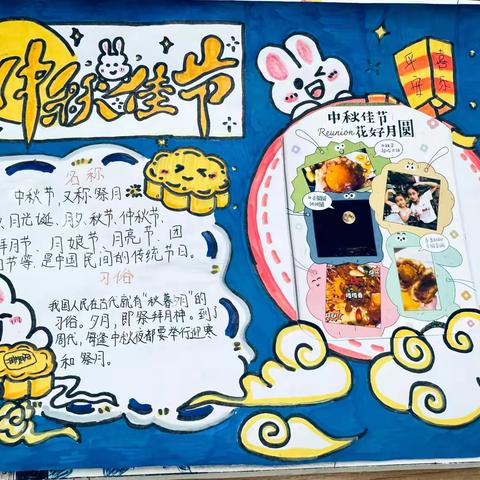 中秋佳节
名称
中秋节,又称祭月
月花诞、月夕、秋节、仲秋节、
拜月节、月娘节、月亮节、团
节等,是中国民间的传统节日。
习俗
我国人民在古代就有“秋暮夕月”的
习俗。夕月,即祭拜月神。到了
周代,每逢中秋夜都要举行迎寒
和祭月。
平安
喜乐
中秋佳节
Reunion 花好月圆